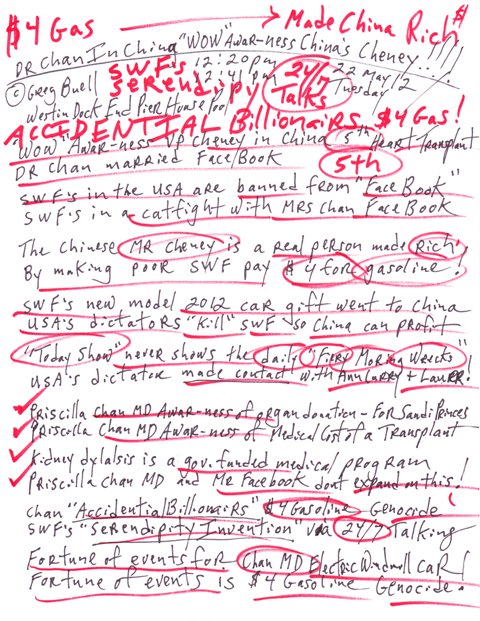 $4 Gas → Made China Rich $
DR chan In China "WOW" Awar-ness China's Cheney...!!!
SWF's 12:20pm 24/7 22 May 12
© Greg Buell Serendipity 12:41pm Talks Tuesday
Westin Dock End Pier House Pool
ACCIDENTIAL Billionairs $4 Gas!
"Wow" Awar-ness VP Cheney in China 5th Heart Transplant
DR Chan married FaceBook 5th
SWF's in the USA are banned from "FaceBook"
SWF's in a catfight with MRS Chan FaceBook
The Chinese MR Cheney is a real person made Rich,
By making poor SWF pay $4 for gasoline!
SWF's new model 2012 car gift went to China
USA's dictators "Kill" SWF so China can profit
"Today Show" never shows the daily "Fiery Moring Wrecks"
USA's dictator made contact with Ann Curry + Laurr!
Priscilla Chan MD Awar-ness of organ donation - For Saudi Princes
Priscilla Chan MD Awar-ness of Medical Cost of a Transplant
Kidney dylalsis is a gov. funded medical program
Priscilla Chan MD and Mr Facebook dont expand on this!
chan "Accidential Billionairs" $4 Gasoline Genocide!
SWF's "Serendipity Invention" via 24/7 Talking
Fortune of events for Chan MD Electric Windmill car!
Fortune of events is $4 Gasoline Genocide!